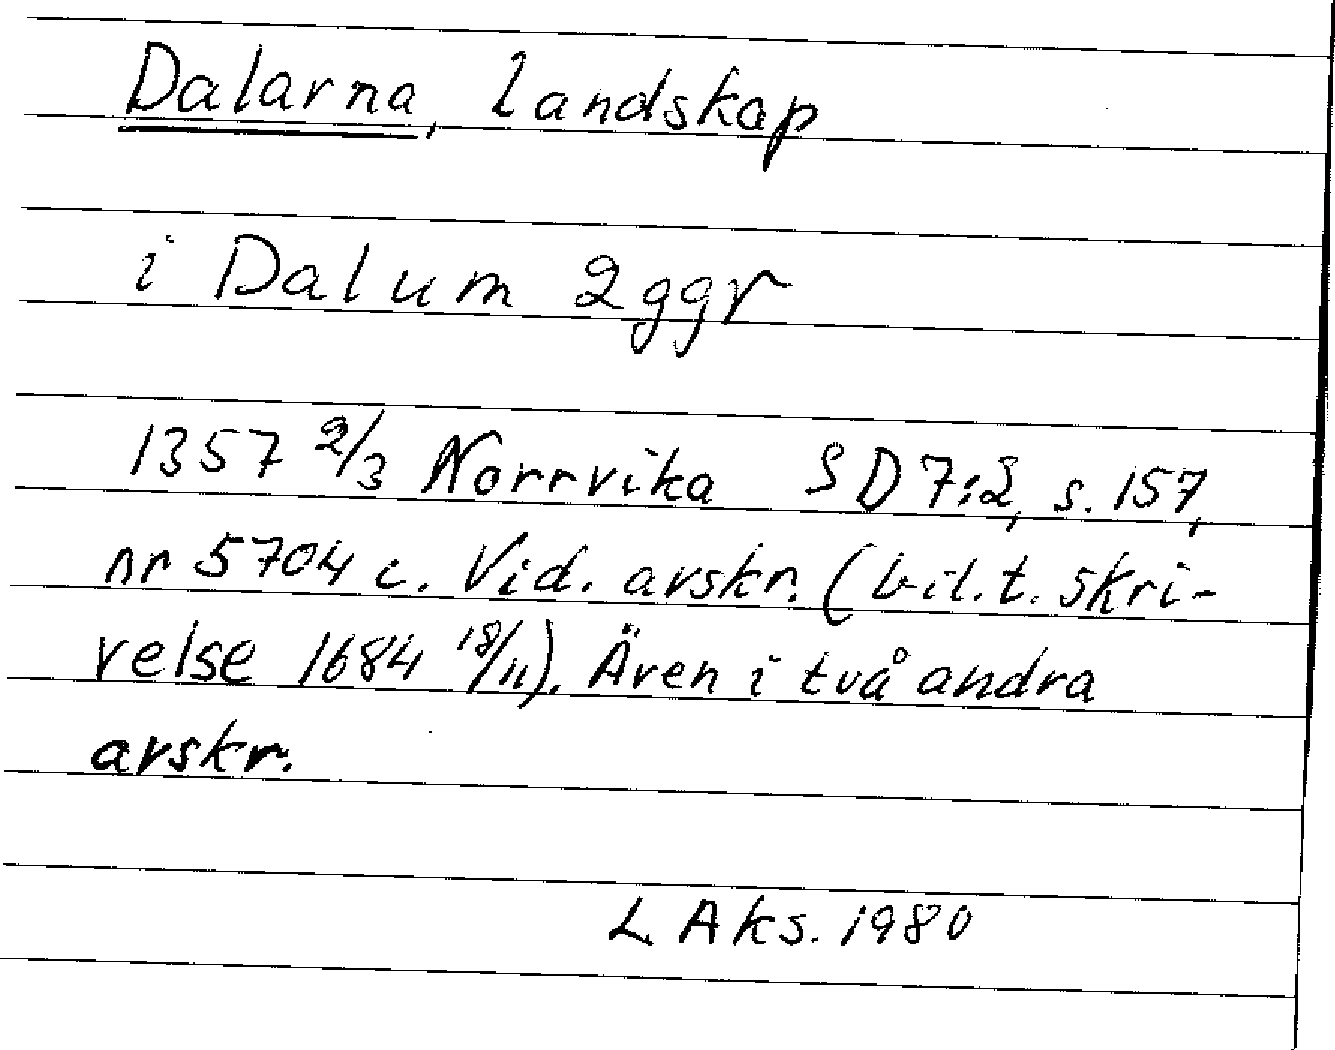 Dalarna, landskap
i Dalum 2ggr
1357 2/3 Norrvika SD 7:2, s. 157,
nr 5704 c. Vid. avskr. (bil. t. skri-
velse 1684 18/11). Även i två andra
avskr.
L Aks. 1980